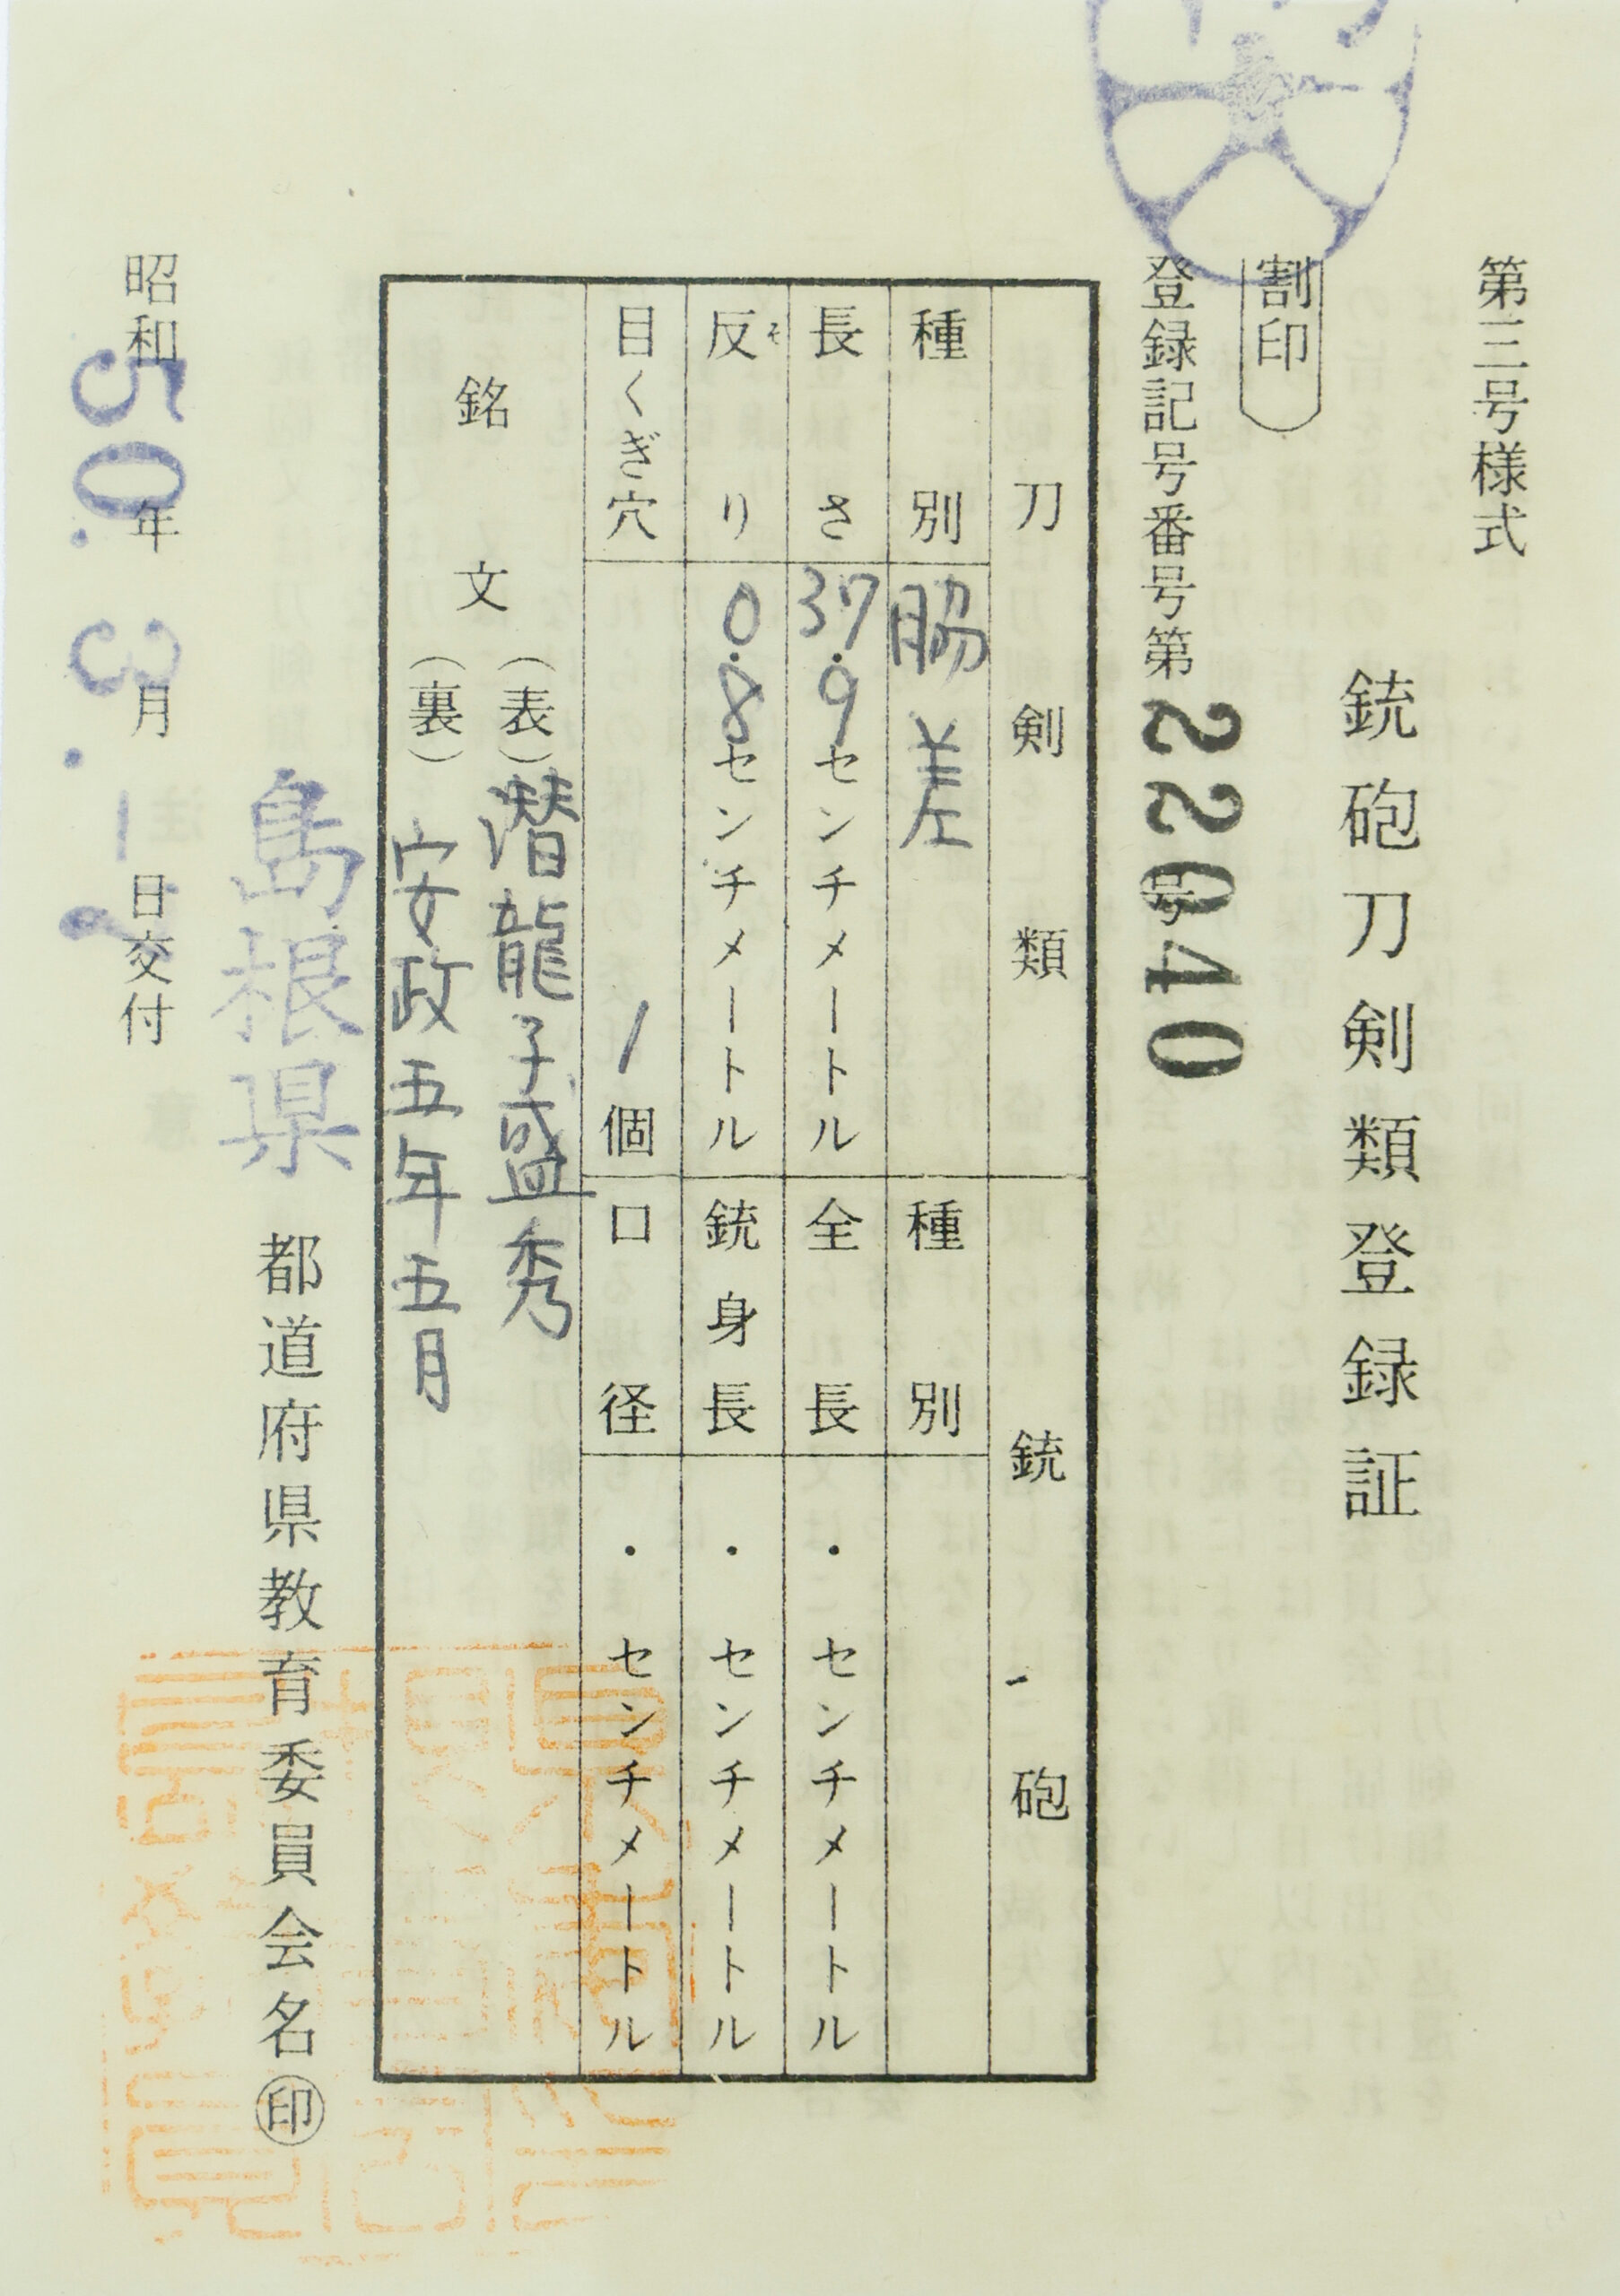 第三号様式
銃砲刀剣類登録証
割印
登録記号番号第22040号
刀剣類
種別 脇差
長さ 37.9センチメートル
反り 0.8センチメートル
そ
目くぎ穴 1個
銃砲
種別
全長 ・センチメートル
銃身長 ・センチメートル
口径 ・センチメートル
銘文
(表)潜龍子盛秀
(裏)安政五年五月
島根県都道府県教育委員会名㊞
昭和50年3月1日交付